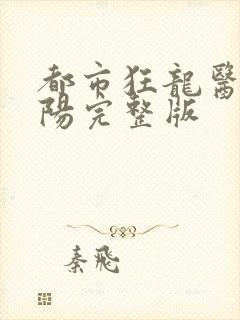 都市狂龍醫
陽完整版
秦飛